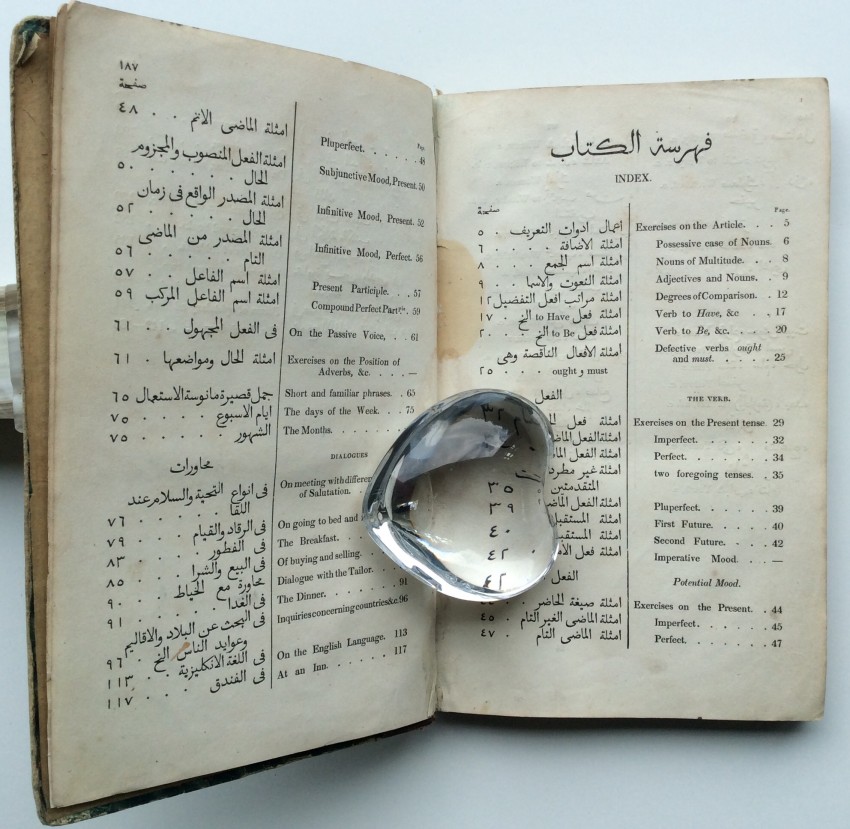 فهرسة الكتاب
INDEX.
Page.
Exercises on the Article. . . 5
Possessive case of Nouns. 6
Nouns of Multitude. . . 8
Adjectives and Nouns. . 9
Degrees of Comparison. . 12
Verb to Have, &c . . 17
Verb to Be, &c. . . . 20
Defective verbs ought
and must. . . . . 25
THE VERB.
Exercises on the Present tense. 29
Imperfect. . . . . . 32
Perfect. . . . . . . 34
two foregoing tenses. . . 35
Pluperfect. . . . . . 39
First Future. . . . . 40
Second Future. . . . . 42
Imperative Mood. . . . —
Potential Mood.
Exercises on the Present. . . 44
Imperfect. . . . . . 45
Perfect. . . . . . . 47
صفحة
اعمال ادوات التعريف . . ٥
امثلة الاضافة . . . ٦
امثلة اسم الجمع . . . ٨
امثلة النعوت والاسما . . ٩
امثلة مراتب افعل التفضيل ١٢
امثلة فعل to Have الخ . ١٧
امثلة فعل to Be الخ . . ٢٠
امثلة الافعال الناقصة وهى
ought و must . . . ٢٥
الفعل
امثلة فعل
امثلة الفعل
امثلة الفعل
امثلة غير مطرد
المتقدمتين ٣٥
امثلة الفعل ٣٩
امثلة المستقبل ٤٠
امثلة المستقبل ٤٢
امثلة فعل ٤٢
الفعل
امثلة صيغة الحاضر . .
امثلة الماضى الغير التام . ٤٥
امثلة الماضى التام . . ٤٧
١٨٧
صفحة
امثلة الماضى الاتم . . ٤٨
امثلة الفعل المنصوب والمجزوم
للحال . . . . . ٥٠
امثلة المصدر الواقع فى زمان
للحال . . . . . ٥٢
امثلة المصدر من الماضى
التام . . . . . ٥٦
امثلة اسم الفاعل . . ٥٧
امثلة اسم الفاعل المركب . ٥٩
فى الفعل المجهول . . ٦١
امثلة للحال ومواضعها . . ٦١
جمل قصيرة مانوسة الاستعمال ٦٥
ايام الاسبوع . . . . ٧٥
الشهور . . . . . ٧٥
محاورات
فى انواع التحية والسلام عند
اللقا . . . . . ٧٦
فى الرقاد والقيام . . ٧٩
فى الفطور . . . . ٨٣
فى البيع والشرا . . . ٨٥
محاورة مع الخياط . . ٩٠
فى الغدا . . . . ٩١
فى البحث عن البلاد والاقاليم
وعوايد الناس الخ . ٩٦
فى اللغة الانكليزية . . ١١٣
فى الفندق . . . . ١١٧
Page
Pluperfect. . . . . . 48
Subjunctive Mood, Present. 50
Infinitive Mood, Present. 52
Infinitive Mood, Perfect. 56
Present Participle. . . 57
Compound Perfect Partle. 59
On the Passive Voice, . . 61
Exercises on the Position of
Adverbs, &c. . . . . —
Short and familiar phrases. . 65
The days of the Week. . . 75
The Months.
DIALOGUES
On meeting with
of Salutation.
On going to bed and
The Breakfast.
Of buying and selling.
Dialogue with the Tailor.
The Dinner. . . . . . 91
Inquiries concerning countries &c. 96
On the English Language. 113
At an Inn. . . . . . 117